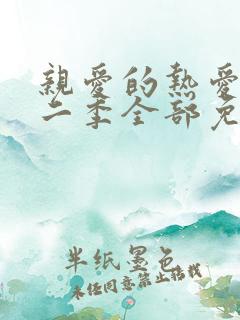 親愛的熱愛
二季全部免
半纸墨色
未经同意禁止搭找